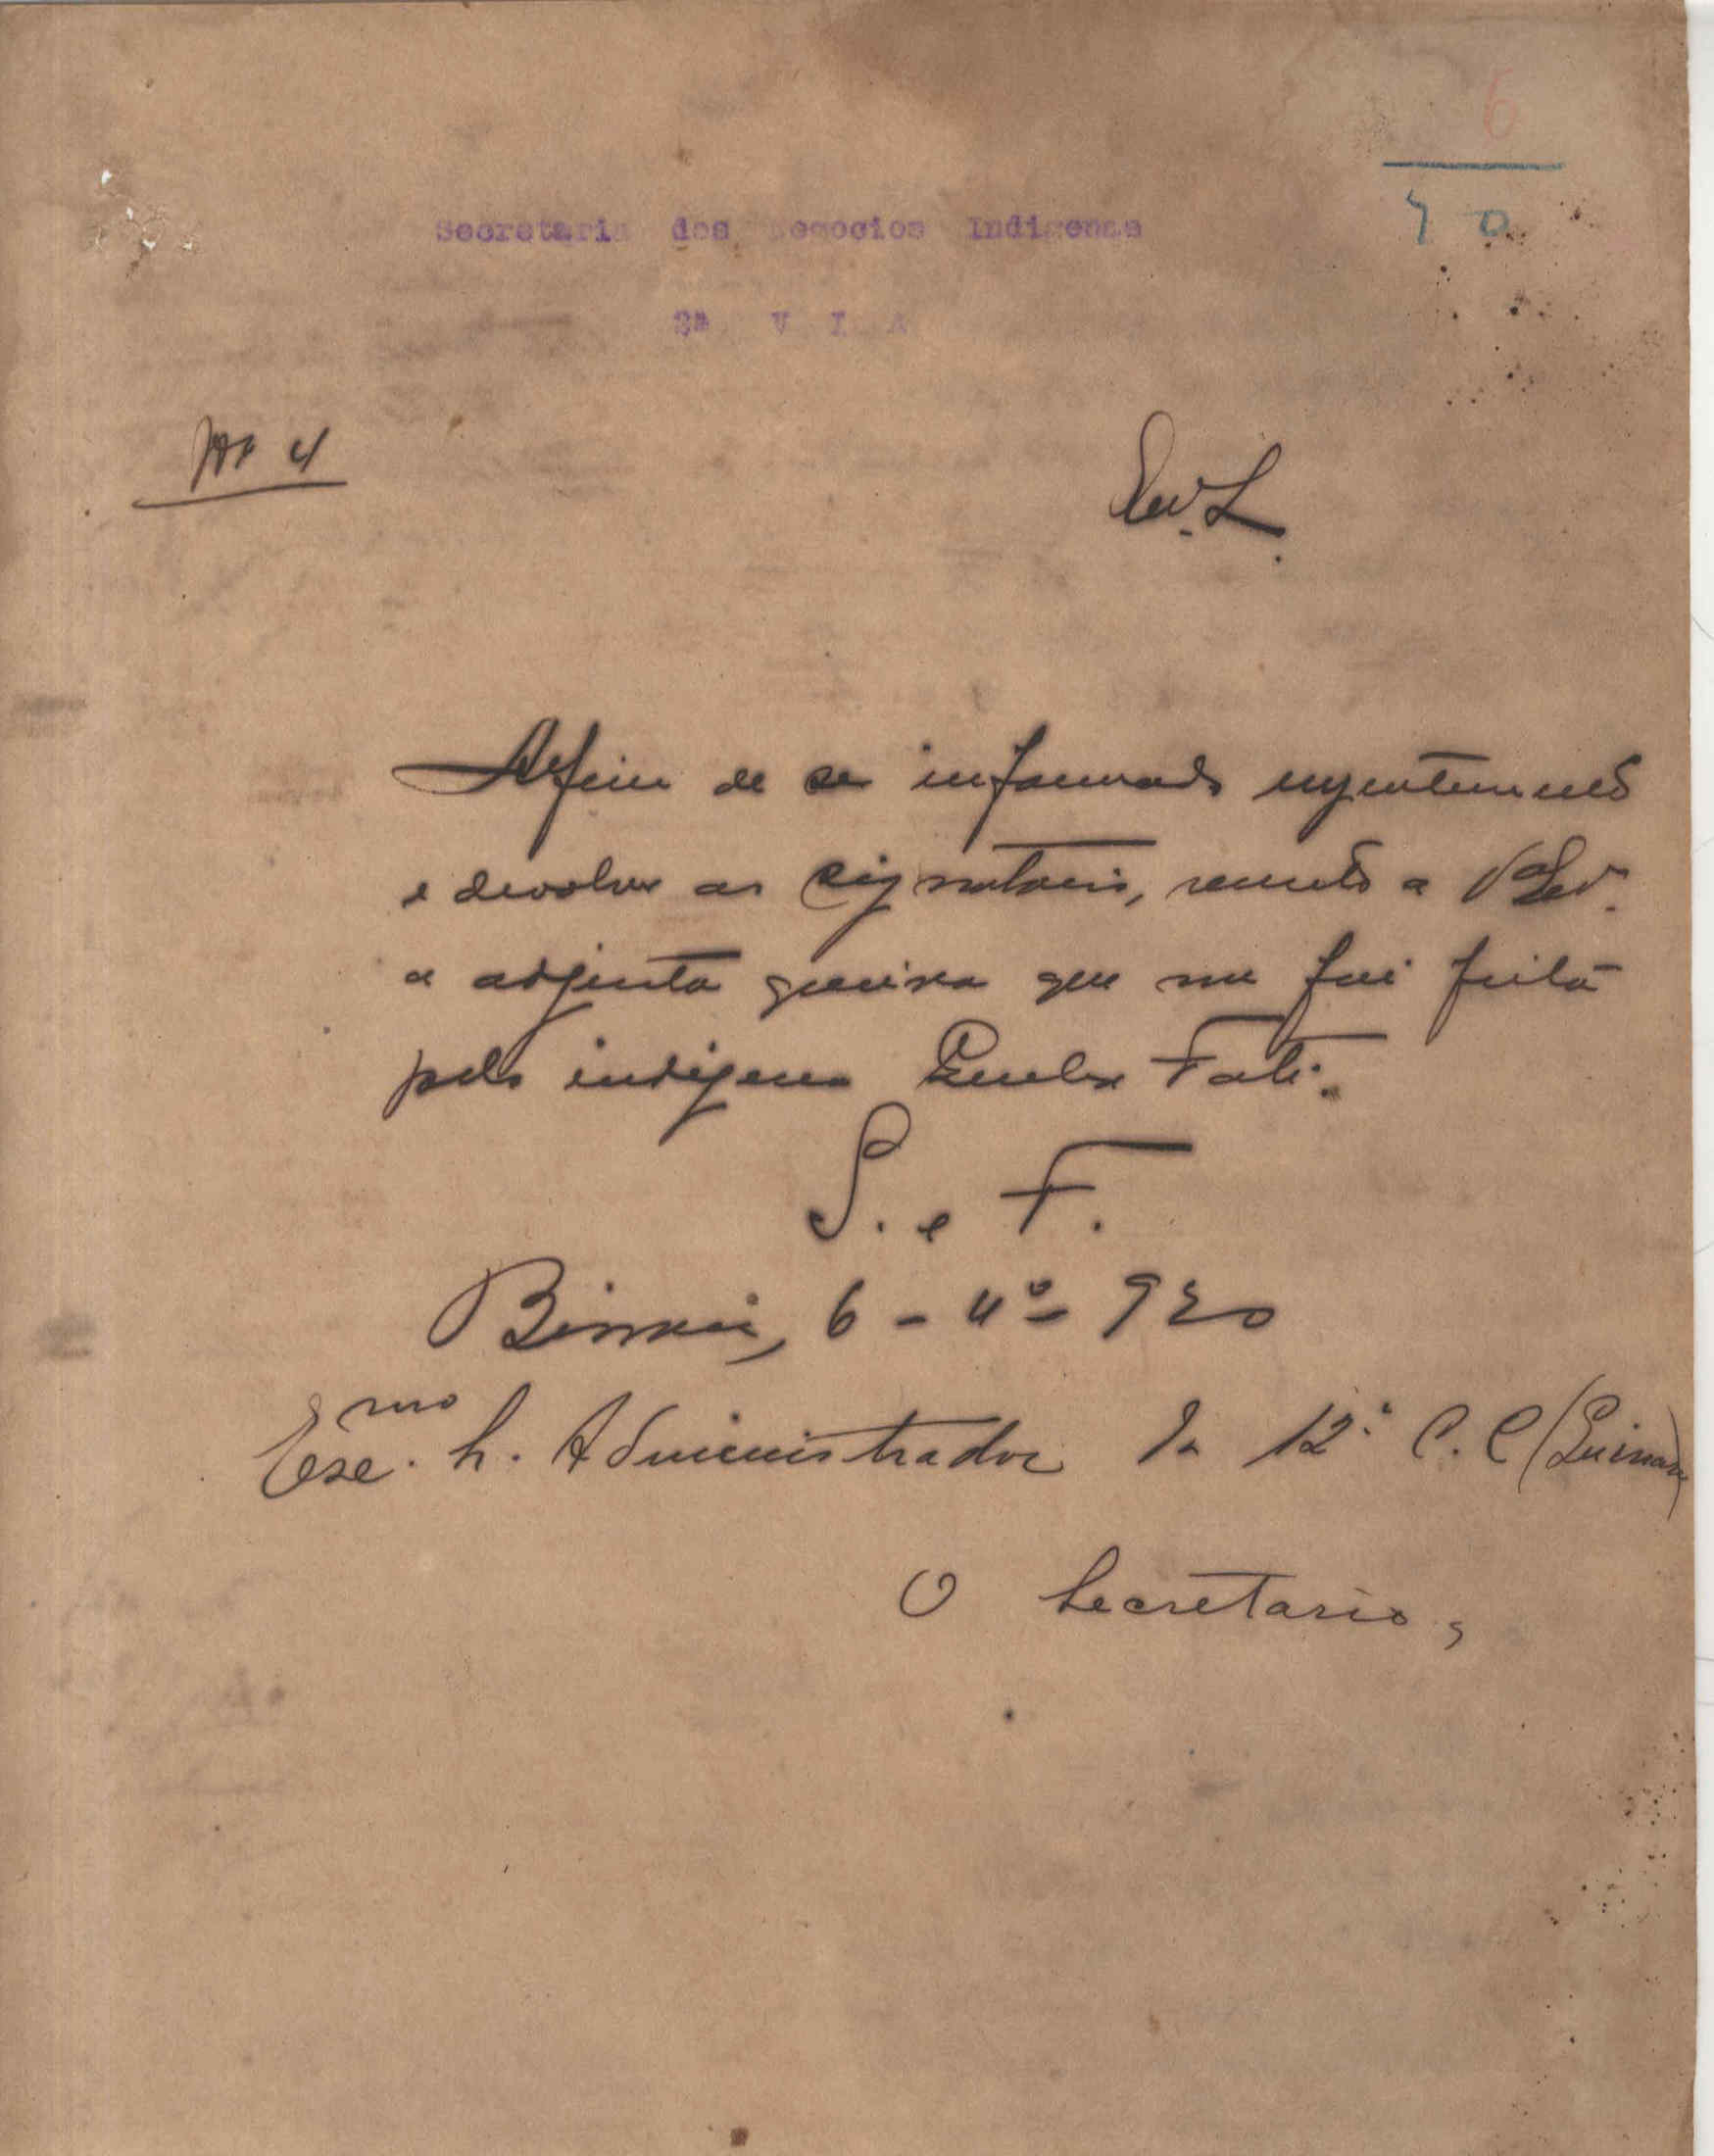 6
70
Secretaria dos Negocios Indigenas
3ª V I A
Nº 4
Afim de ser informado urgentemente
e devolver ao signatario, remeto a V.
a adjunta queixa que me foi feita
pelo indigena Fati.
S. e F.
Bissau, 6 - 4º - 920
Exc.mo S. Administrador da 12ª C. C
O Secretario,